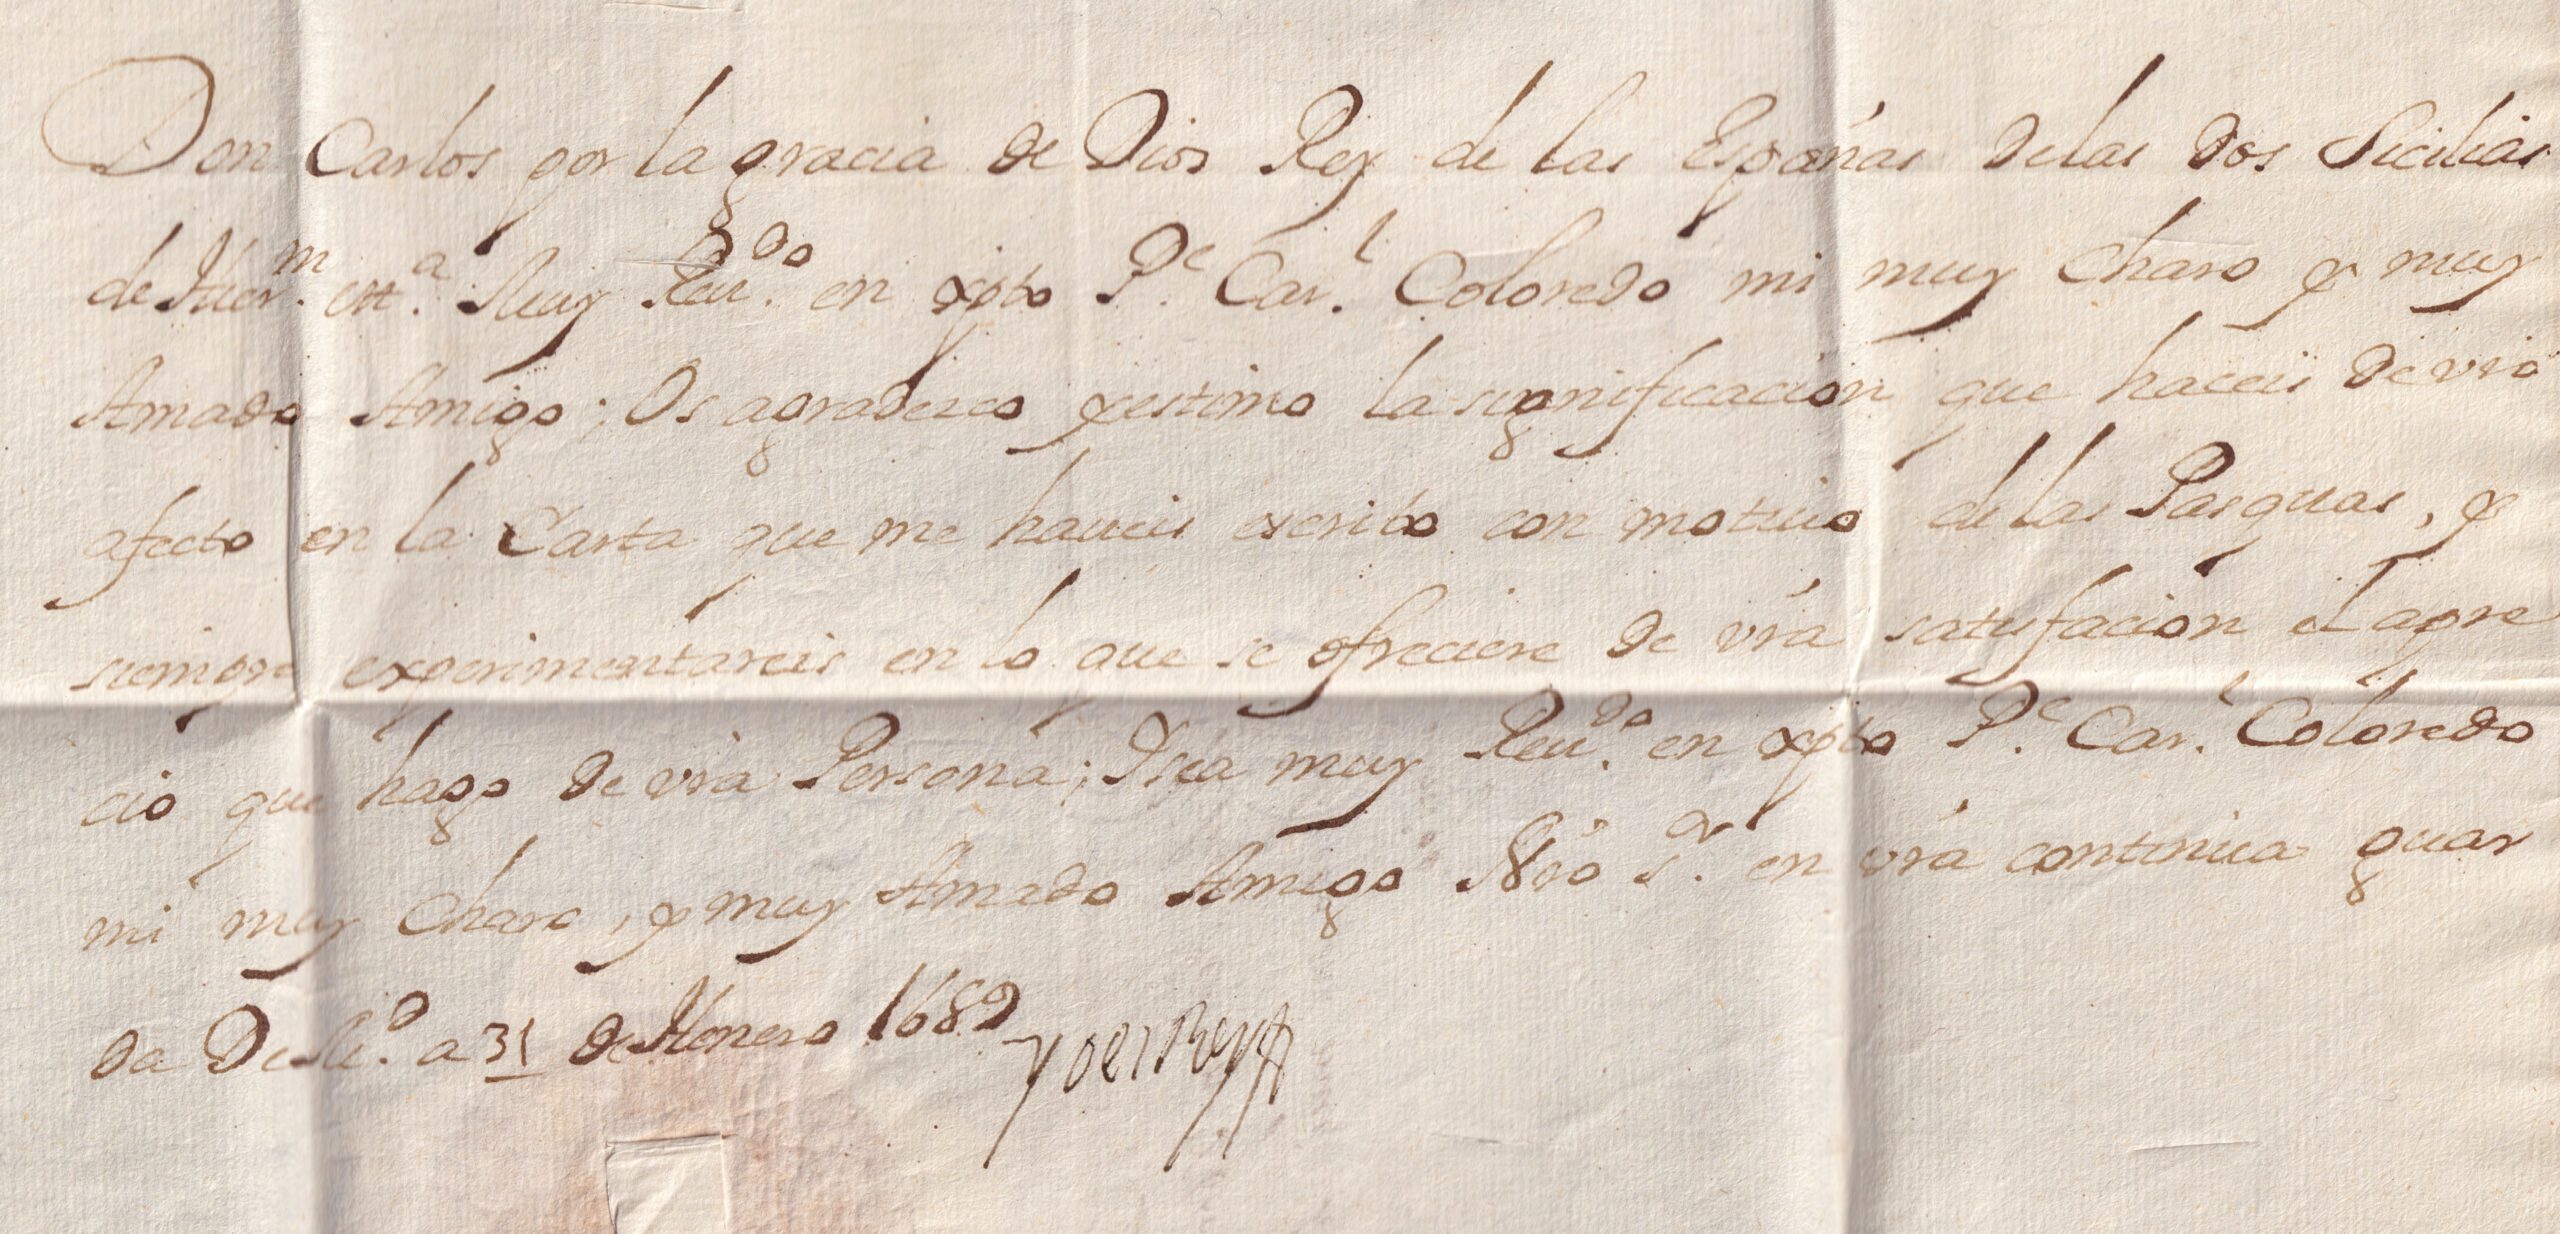 Don Carlos por la gracia de Dios Rey de las Españas delas dos Sicilias
de Hier.m ett.a Muy Reu.do en xpto P.e Car.l Coloredo mi muy Charo y muy
Amado Amigo; Os agradezco y estimo la significacion que haceis de vro
afecto en la Carta que me haueis escrito con motiuo de las Pasquas, y
siempre experimentareis en lo que se ofreciere de vra satisfacion el apre
cio que hago de vra Persona; Y sea muy Reu.do en xpto P.e Car.l Coloredo
mi muy Charo, y muy Amado Amigo Nro S.or en vra continua guar
da De M.d a 31 de Henero 1689
Yo el Rey